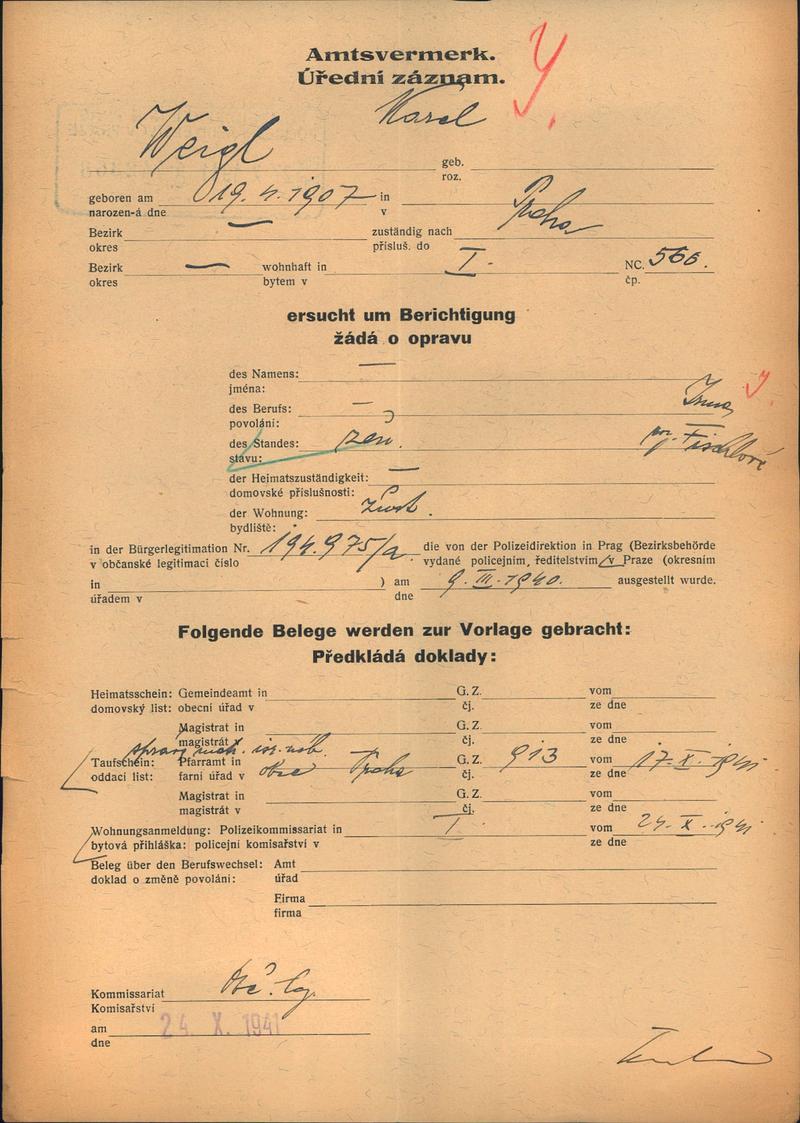 Amtsvermerk.
Úřední záznam.
Weigl Karel
geb.
roz.
geboren am 19.4.1907 in
narozen-á dne v
Bezirk — zuständig nach Praha
okres přísluš. do
Bezirk — wohnhaft in I. NC. 566.
okres bytem v čp.
ersucht um Berichtigung
žádá o opravu
des Namens: —
jména:
des Berufs: — Irma
povolání:
des Standes: žen. roz. Fischlová
stavu:
der Heimatszuständigkeit: —
domovské příslušnosti:
der Wohnung:
bydliště:
in der Bürgerlegitimation Nr. 194.975/a die von der Polizeidirektion in Prag (Bezirksbehörde
v občanské legitimaci číslo vydané policejním, ředitelstvím v Praze (okresním
in ) am 9. III. 1940. ausgestellt wurde.
úřadem v dne
Folgende Belege werden zur Vorlage gebracht:
Předkládá doklady:
Heimatsschein: Gemeindeamt in G. Z. vom
domovský list: obecní úřad v čj. ze dne
Magistrat in G. Z. vom
magistrát v čj. ze dne
správ. mat. isr. náb.
Taufschein: Pfarramt in obce Praha G. Z. 913 vom 17. X. 1941
oddací list: farní úřad v čj. ze dne
Magistrat in G. Z. vom
magistrát v čj. ze dne
Wohnungsanmeldung: Polizeikommissariat in I. vom 24. X. 1941
bytová přihláška: policejní komisařství v ze dne
Beleg über den Berufswechsel: Amt
doklad o změně povolání: úřad
Firma
firma
Kommissariat Obč. leg.
Komisařství
am 24. X. 1941
dne